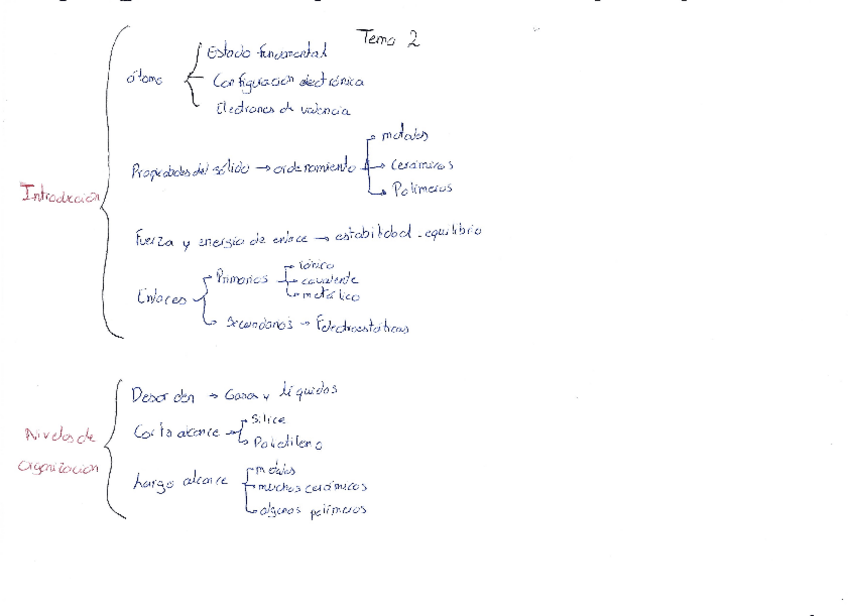 Tema 2
Introducción
átomo
Estado fundamental
Configuración electrónica
Electrones de valencia
Propiedades del sólido → ordenamiento
metales
cerámicos
Polímeros
Fuerza y energía de enlace → estabilidad - equilibrio
Enlaces
Primarios
iónico
covalente
metálico
Secundarios → Electroestáticas
Niveles de
organización
Desorden → Gases y líquidos
Corto alcance
Sílice
Polietileno
Largo alcance
metales
muchos cerámicos
algunos polímeros